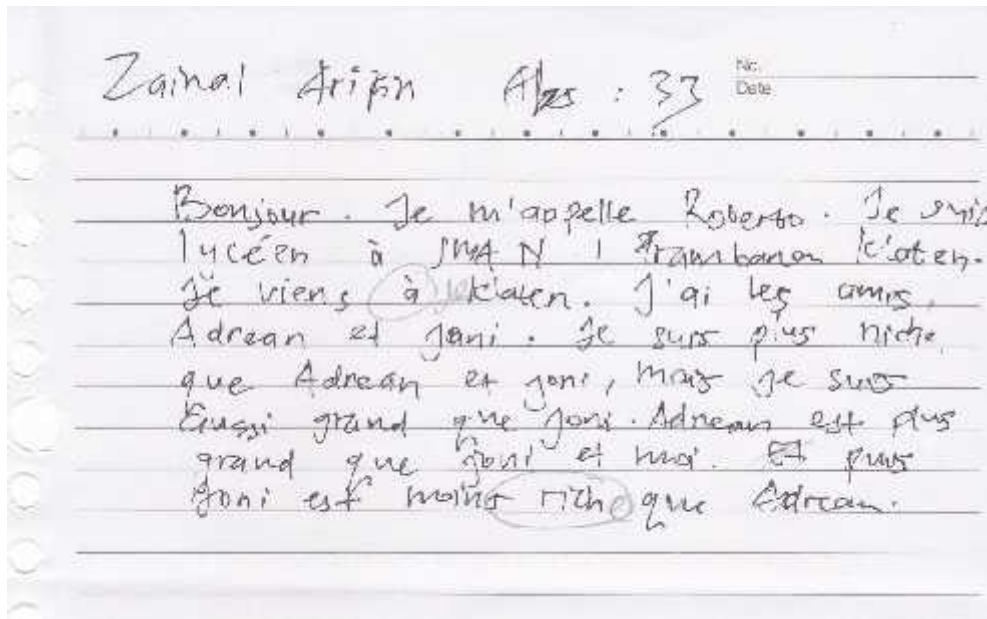 Zainal Arifin Abs : 33
No.
Date
Bonjour. Je m'appelle Roberto. Je suis
lycéen à SMA N 1 Prambanan Klaten.
Je viens à Klaten. J'ai les amis,
Adrean et Joni. Je suis plus riche
que Adrean et Joni, mais je suis
Aussi grand que Joni. Adrean est plus
grand que Joni et moi. Et puis
Joni est moins riche que Adrean.